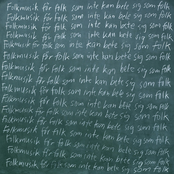 Folkmusik för folk som inte kan bete sig som folk
Folkmusik för folk som inte kan bete sig som folk
Folkmusik för folk som inte kan bete sig som folk
Folkmusik för folk som inte kan bete sig som folk
Folkmusik för folk som inte kan bete sig som folk
Folkmusik för folk som inte kan bete sig som folk
Folkmusik för folk som inte kan bete sig som folk
Folkmusik för folk som inte kan bete sig som folk
Folkmusik för folk som inte kan bete sig som folk
Folkmusik för folk som inte kan bete sig som folk
Folkmusik för folk som inte kan bete sig som folk
Folkmusik för folk som inte kan bete sig som folk